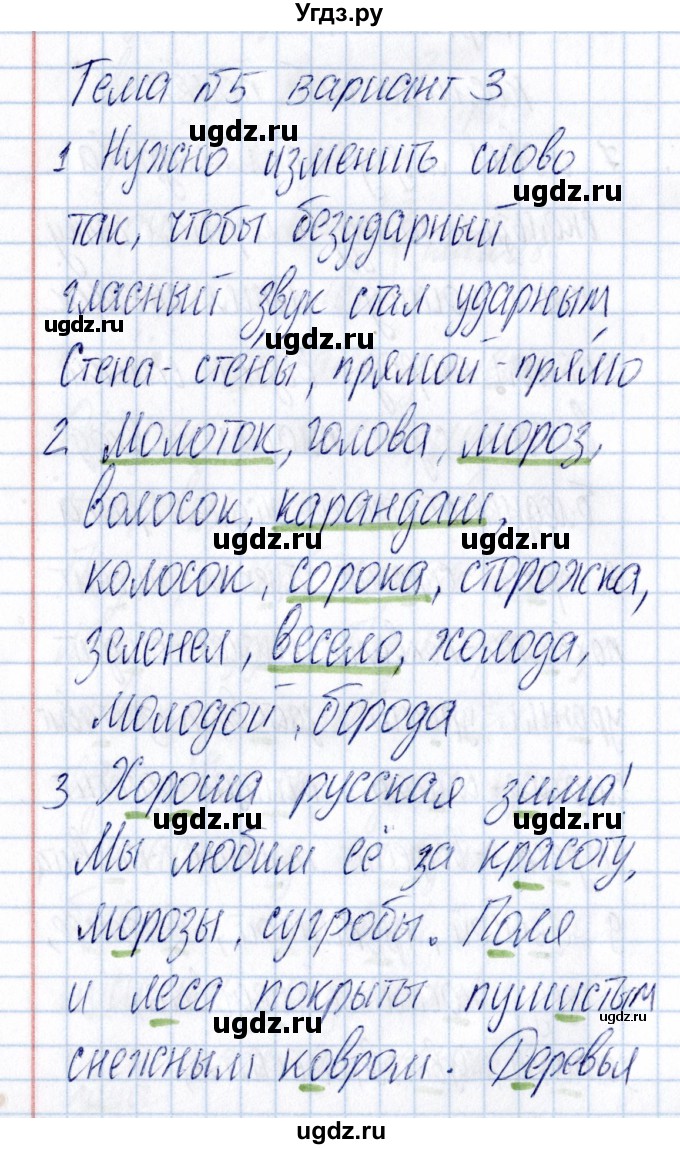 Угдз.ру
Тема №5 вариант 3
ugdz.ru
1 Нужно изменить слово
ugdz.ru
так, чтобы безударный
гласный звук стал ударным
ugdz.ru ugdz.ru
Стена - стены, прямой - прямо
2. Молоток, голова, мороз,
волосок, карандаш,
ugdz.ru ugdz.ru
колосок, сорока, сторожка,
зеленел, весело, холода,
ugdz.ru ugdz.ru
молодой, борода
3 Хороша русская зима!
ugdz.ru ugdz.ru
Мы любим её за красоту,
морозы, сугробы. Поля
ugdz.ru ugdz.ru
и леса покрыты пушистым
ugdz.ru ugdz.ru
снежным ковром. Деревья
ugdz.ru